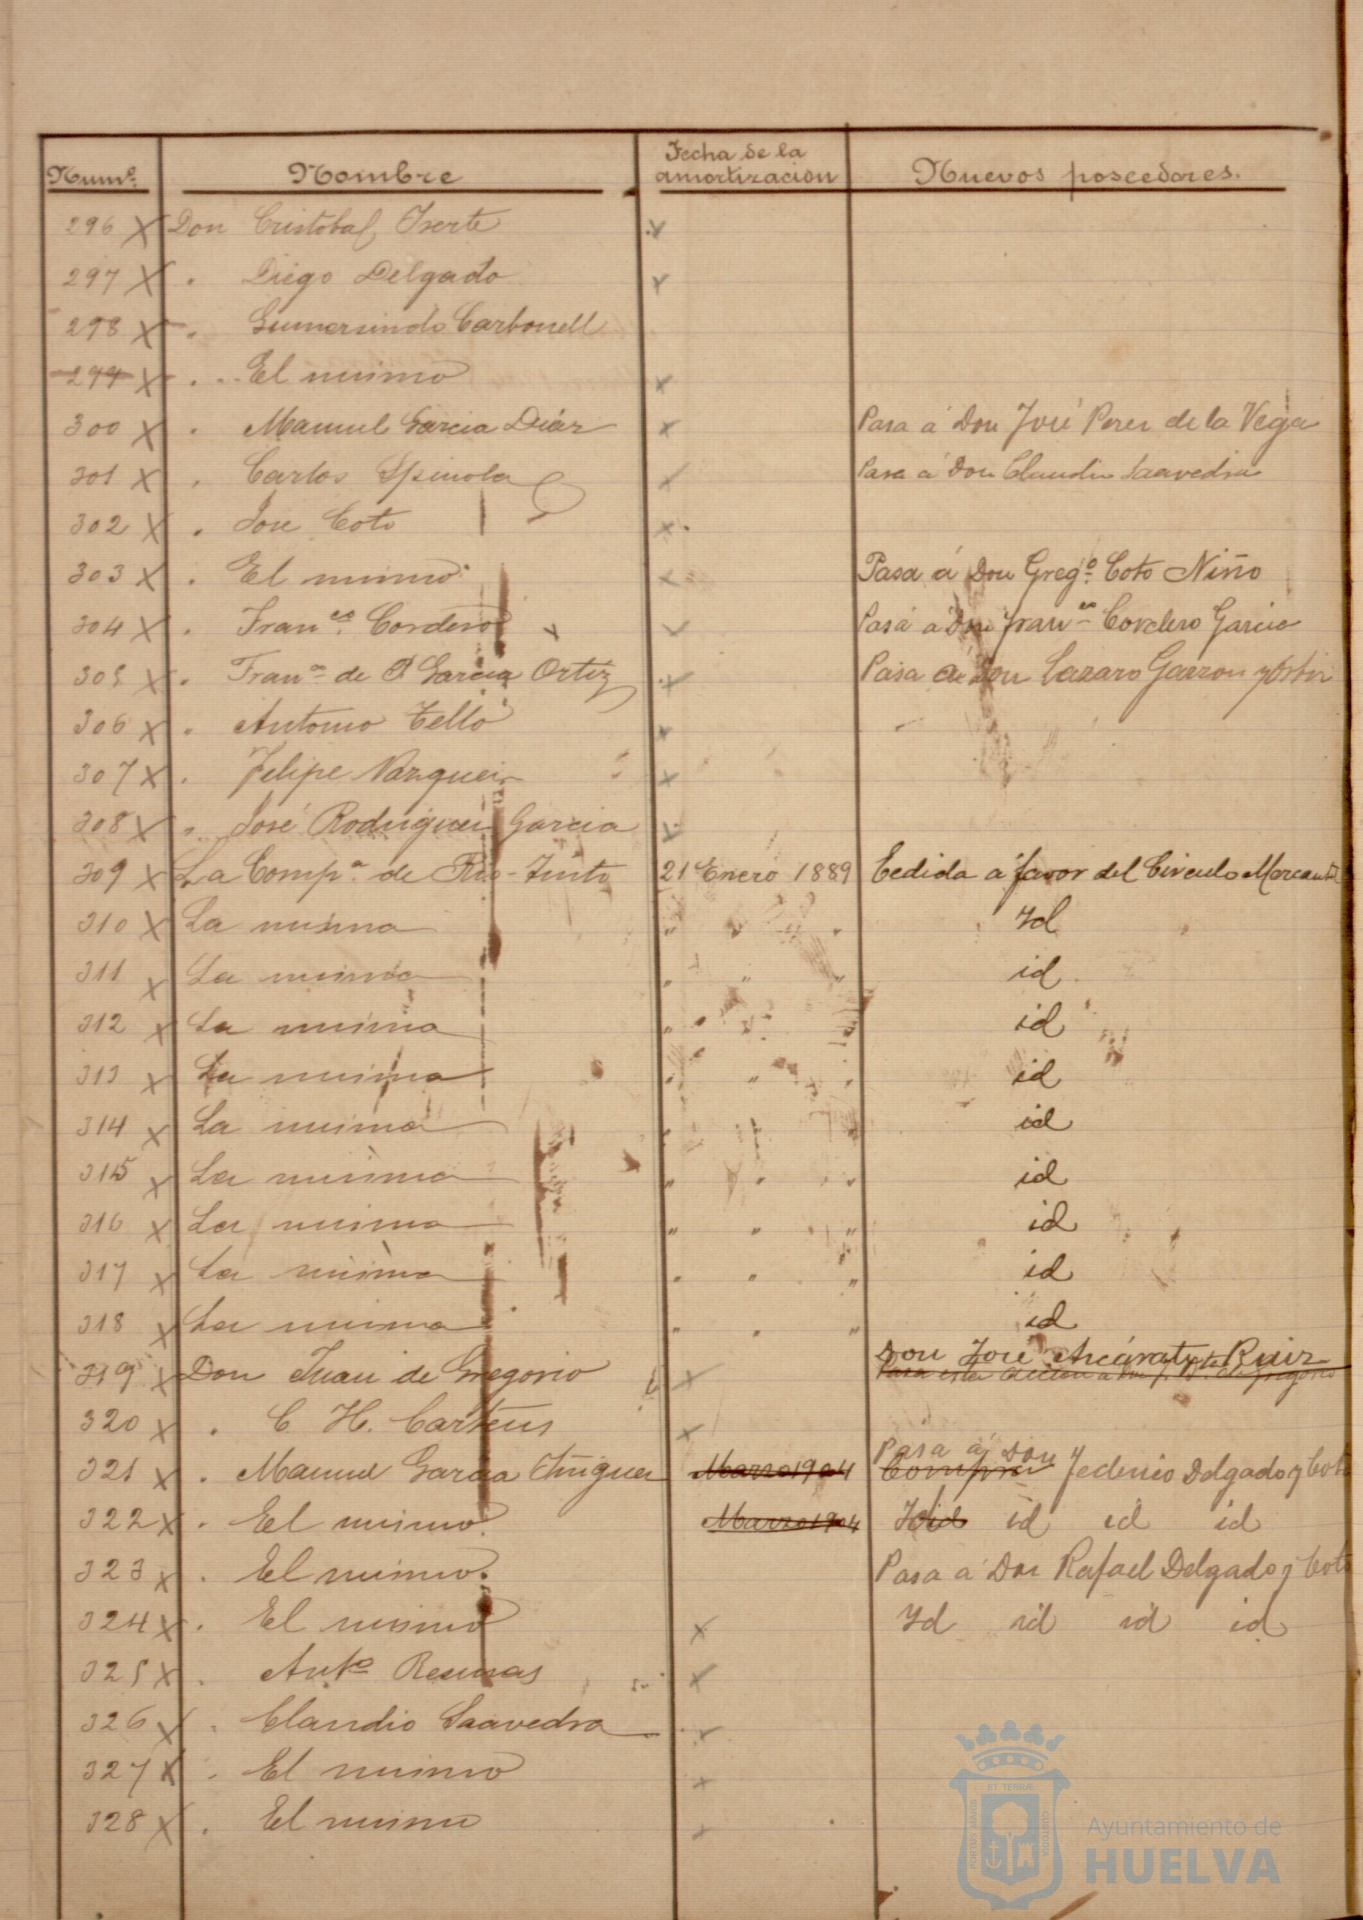 Numº Nombre Fecha de la amortización Nuevos poseedores.
296 X Don Cristobal Iserte
297 X " Diego Delgado
298 X " Gumersindo Carbonell
299 X " El mismo
300 X " Manuel Garcia Diáz Pasa á Don José Perez de la Vega
301 X " Carlos Spinola Pasa á Don Claudio Saavedra
302 X " Jose Coto
303 X " El mismo Pasa á Don Gregº Coto Niño
304 X " Franco Cordero Pasa á Don Franco Cordero Garcia
305 X " Franco de P. Garcia Ortiz Pasa a Don Lazaro Garzon y Ortiz
306 X " Antonio Tello
307 X " Felipe Vazquez
308 X " José Rodriguez Garcia
309 X La Compª de Rio-Tinto 21 Enero 1889 Cedida a favor del Circulo Mercantil
310 X La misma " " " Id
311 X La misma " " " id
312 X La misma " " " id
313 X La misma " " " id
314 X La misma " " " id
315 X La misma " " " id
316 X La misma " " " id
317 X La misma " " " id
318 X La misma " " " id
Don José Ruiz
319 X Don Juan de Gregorio Pasa esta acción a Don
320 X " C H.
Pasa á Don
321 X " Manuel Garcia Iñiguez Marzo 1904 Compra Federico Delgado y Coto
322 X " El mismo Marzo 1904 Id id id id
323 X " El mismo Pasa á Don Rafael Delgado y Coto
324 X " El mismo Id id id id
325 X " Antº
326 X " Claudio Saavedra
327 X " El mismo
328 X " El mismo
ET TERRÆ
PORTUS MARIS
CUSTODIA
Ayuntamiento de
HUELVA